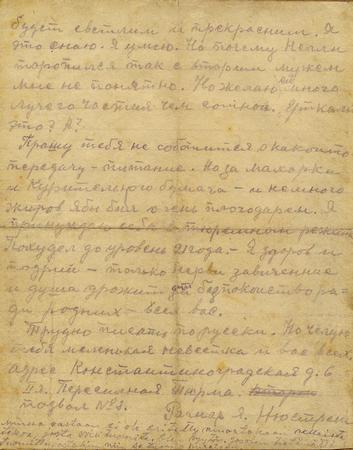 будет светлим и прекрасним. Я
это знаю. Я умею. Но почему Нелли
торопился так с вторим мужем
мне не понятно. Но желаю ей много
лучего частия чем со мной.
это? А?
Прашу тебя не соботится о какойто
передачу – питание. Но за махорки
и Курительного бумага – и немного
жиров я бы был очень
Я
принуждаю себя в тюремном режим
Похудел до уровень 21 года. – Я здоров и
бодрий – только нерви
и душа дрожит от безпокойство ра-
ди родних – всех вас.
Трудно писать по русски. Но целую
тебя меленькая невестка и вас всех
адрес Константиноградская д. 6
II л. Пересилная Тюрма.
подвал № 3.
Рагнар Я. Нюстрем